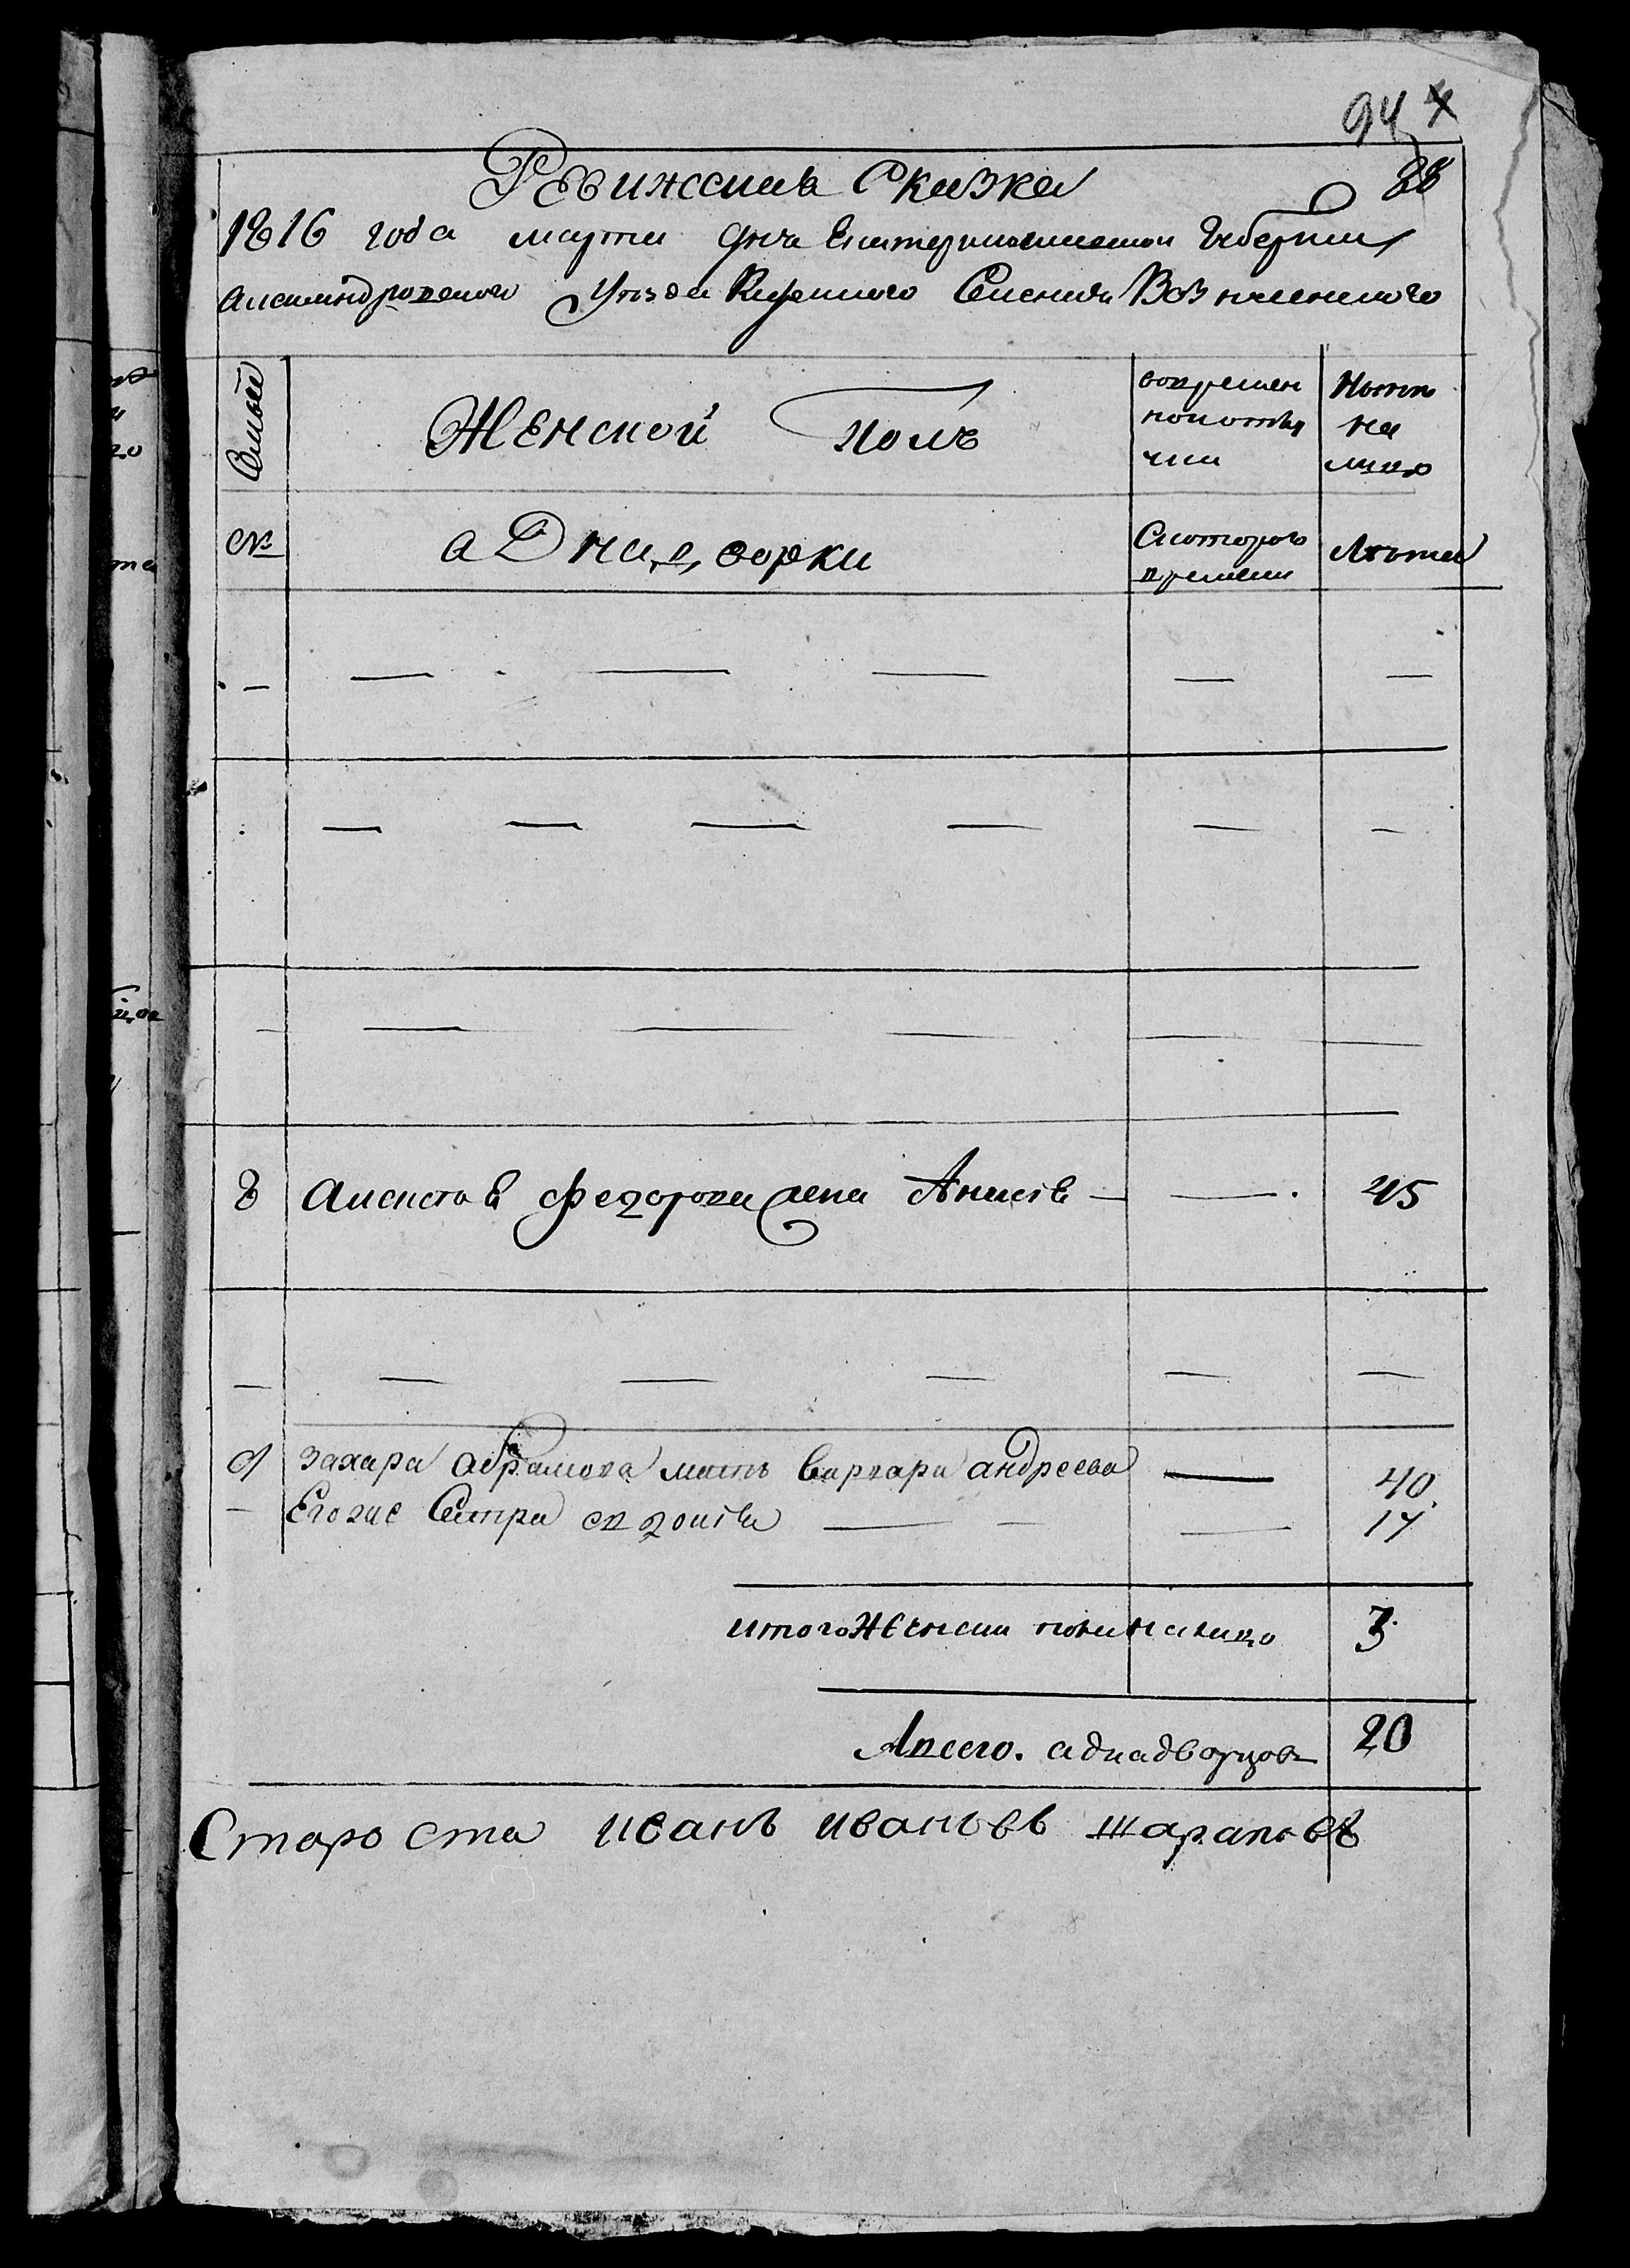 94 4
88
Ревижская Сказка
1816 года марта дня Екатеринославской Губернии
Александровского Уезда Казенного Селения Вознесенского
Семьи
Женской полъ
вовремен
ной отлу
чки
Ныне
на
лицо
№
аднадворки
Скоторого
времени
Лета
8 Алексея Федорова жена Анисья — — 45
9 захара абрамова мать варвара андреева — 40
— Его же Сестра евдокия — — — 17
итого Женска пола налицо 3
Авсего. аднадворцовъ 20
Старо ста иванъ ивановъ шараповъ